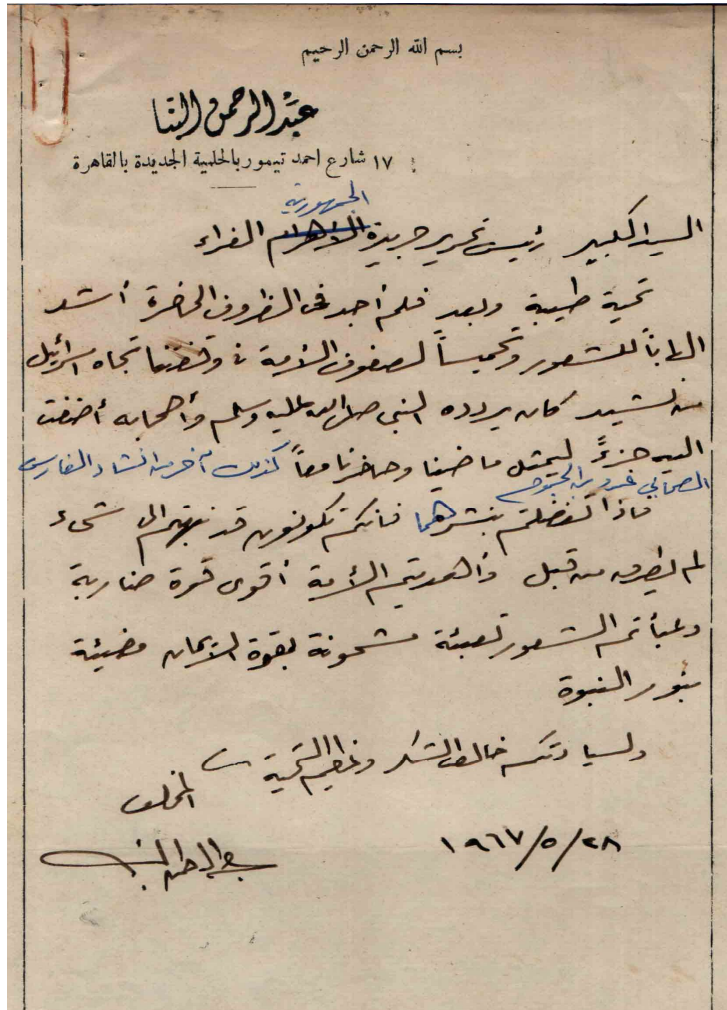 بسم الله الرحمن الرحيم
عبد الرحمن البنا
١٧ شارع احمد تيمور بالحلمية الجديدة بالقاهرة
الجمهورية
السيد الكبير رئيس تحرير جريدة الأهرام الغراء
تحية طيبة وبعد فلم أجد في الظروف الحاضرة أشد
الهاباً للشعور وتحميساً لصفوف الأمة في وقفتنا تجاه اسرائيل
من نشيد كان يردده النبي صلى الله عليه وسلم وأصحابه أضفت
اليه جزءً ليمثل ماضينا وحاضرنا معاً كذلك آخر من انشاد الفارس
الصحابي فروة بن
فاذا تفضلتم بنشرهما فانكم تكونون قد نبهتم الى شىء
لم يطرق من قبل وأهديتم الأمة أقوى قوة ضاربة
وعبأتم الشعور تعبئة مشحونة بقوة الايمان مضيئة
بنور النبوة
ولسيادتكم خالص الشكر وعظيم التحية
المخلص
١٩٦٧/٥/٢٨
عبد الرحمن البنا